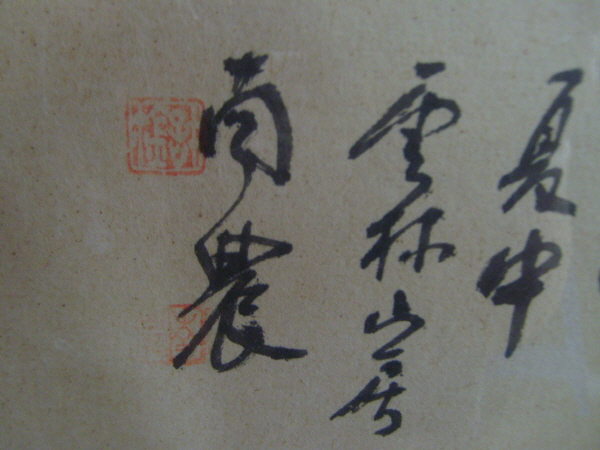 夏中
雲林山居
南農